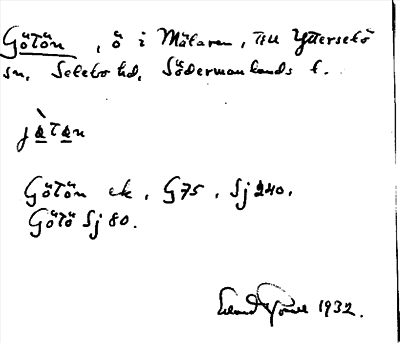 Götön, ö i Mälaren, till Ytterselö
sn, Selebo hd, Södermanlands l.
jø̀tøn
Götön ek, G75, Sj 240.
Götö Sj 80.
1932.